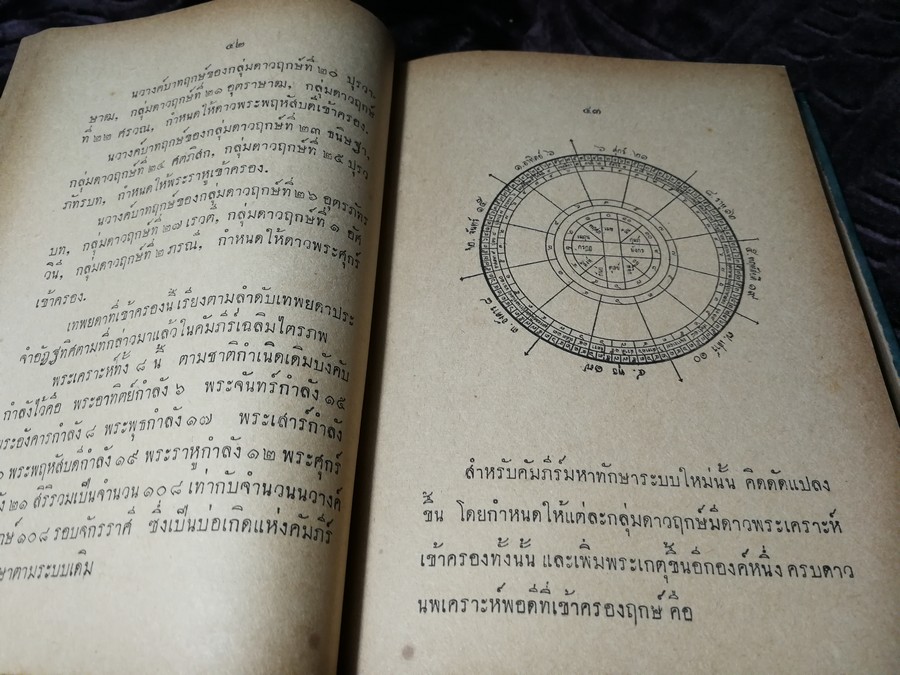 ๔๒
นวางค์บาทฤกษ์ของกลุ่มดาวฤกษ์ที่ ๒๐ ปุรวา
ษาฒ, กลุ่มดาวฤกษ์ที่ ๒๑ อุตราษาฒ, กลุ่มดาวฤกษ์
ที่ ๒๒ ศรวณ, กำหนดให้ดาวพระพฤหัสบดีเข้าครอง.
นวางค์บาทฤกษ์ของกลุ่มดาวฤกษ์ที่ ๒๓ ธนิษฐา,
กลุ่มดาวฤกษ์ที่ ๒๔ ศตภิสัก, กลุ่มดาวฤกษ์ที่ ๒๕ ปุรว
ภัทรบท, กำหนดให้พระราหูเข้าครอง.
นวางค์บาทฤกษ์ของกลุ่มดาวฤกษ์ที่ ๒๖ อุตรภัทร
บท, กลุ่มดาวฤกษ์ที่ ๒๗ เรวตี, กลุ่มดาวฤกษ์ที่ ๑ อัศ
วินี, กลุ่มดาวฤกษ์ที่ ๒ ภรณี, กำหนดให้ดาวพระศุกร์
เข้าครอง.
เทพยดาที่เข้าครองนี้ เรียงตามลำดับเทพยดาประ
จำอัฏฐทิศตามที่กล่าวมาแล้ว ในคัมภีร์เฉลิมไตรภพ
พระเคราะห์ทั้ง ๘ นี้ ตามชาติกำเนิดเดิมบังคับ
กำลังไว้คือ พระอาทิตย์กำลัง ๖ พระจันทร์กำลัง ๑๕
พระอังคารกำลัง ๘ พระพุธกำลัง ๑๗ พระเสาร์กำลัง
๐ พระพฤหัสบดีกำลัง ๑๙ พระราหูกำลัง ๑๒ พระศุกร์
ัง ๒๑ สิริรวมเป็นจำนวน ๑๐๘ เท่ากับจำนวนนวางค์
กษ์ ๑๐๘ รอบจักรราศี ซึ่งเป็นบ่อเกิดแห่งคัมภีร์
ษาตามระบบเดิม
๔๓
๑. อาทิตย์ ๖
๖ ศุกร์ ๒๑
๘ ราหู ๑๒
๒. จันทร์ ๑๕
๕ พฤหัสบดี ๑๙
๓. อังคาร ๘
๗. เสาร์ ๑๐
๔. พุธ ๑๗
สำหรับคัมภีร์มหาทักษาระบบใหม่นั้น คิดดัดแปลง
ขึ้น โดยกำหนดให้แต่ละกลุ่มดาวฤกษ์มีดาวพระเคราะห์
เข้าครองทั้งนั้น และเพิ่มพระเกตุขึ้นอีกองค์หนึ่ง ครบดาว
นพเคราะห์พอดีที่เข้าครองฤกษ์ คือ